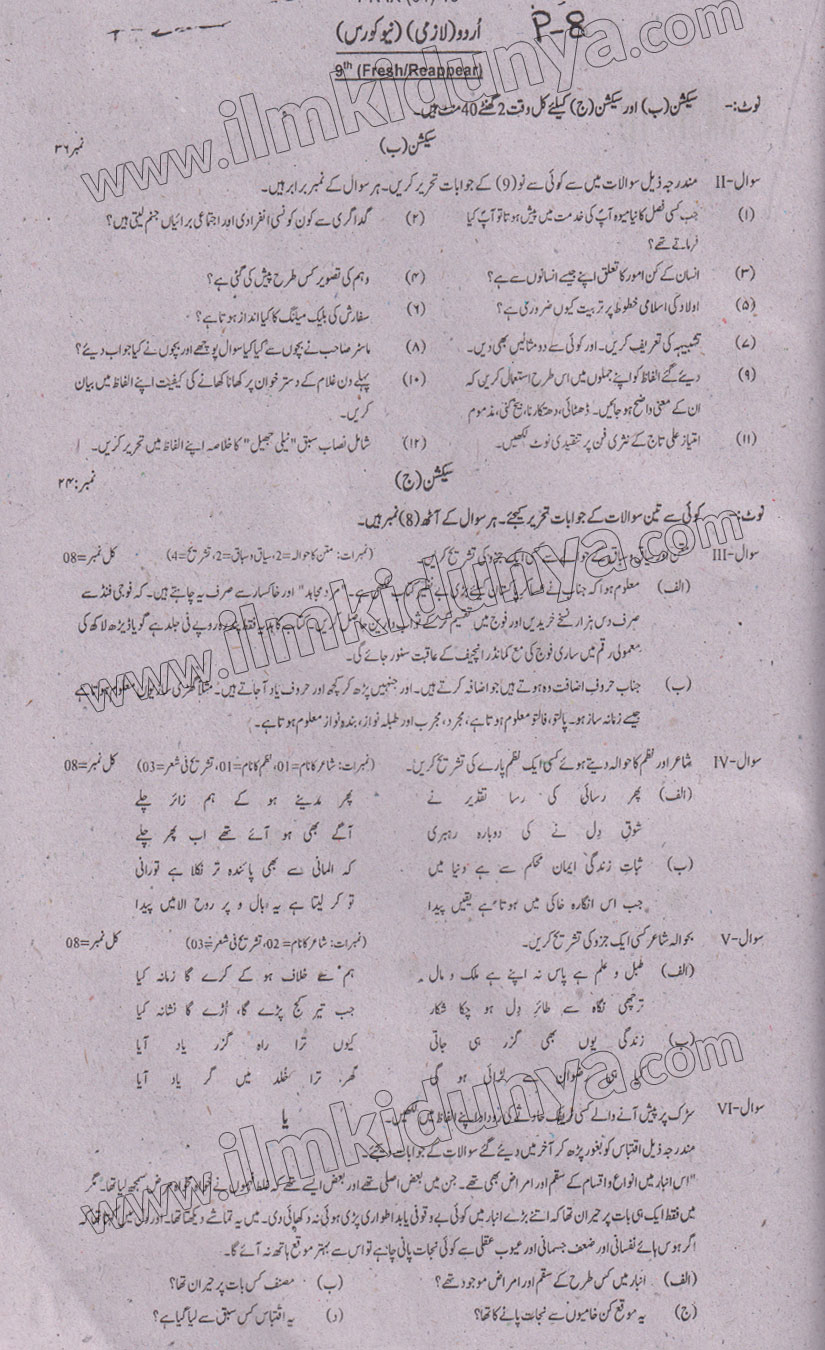 P-8
اُردو (لازمی) (نیو کورس)
9th (Fresh/Reappear)
نوٹ:- سیکشن (ب) اور سیکشن (ج) کیلئے کل وقت 2 گھنٹے 40 منٹ ہیں۔
سیکشن (ب) نمبر ۳۶
سوال-II مندرجہ ذیل سوالات میں سے کوئی سے نو (9) کے جوابات تحریر کریں۔ ہر سوال کے نمبر برابر ہیں۔
(۱) جب کسی فصل کا نیا میوہ آپؐ کی خدمت میں پیش ہوتا تو آپؐ کیا (۲) گداگری سے کون کونسی انفرادی اور اجتماعی برائیاں جنم لیتی ہیں؟
فرماتے تھے؟
(۳) انسان کے کن امور کا تعلق اپنے جیسے انسانوں سے ہے؟ (۴) وہم کی تصویر کس طرح پیش کی گئی ہے؟
(۵) اولاد کی اسلامی خطوط پر تربیت کیوں ضروری ہے؟ (۶) سفارش کی بلیک میلنگ کا کیا انداز ہوتا ہے؟
(۷) تشبیہہ کی تعریف کریں۔ اور کوئی سے دو مثالیں بھی دیں۔ (۸) ماسٹر صاحب نے بچوں سے کیا کیا سوال پوچھے اور بچوں نے کیا جواب دیئے؟
(۹) دیئے گئے الفاظ کو اپنے جملوں میں اس طرح استعمال کریں کہ (۱۰) پہلے دن غلام کے دسترخوان پر کھانا کھانے کی کیفیت اپنے الفاظ میں بیان
ان کے معنی واضح ہو جائیں۔ ڈھٹائی، دھتکارنا، بیخ کنی، مذموم کریں۔
(۱۱) امتیاز علی تاج کے نثری فن پر تنقیدی نوٹ لکھیں۔ (۱۲) شامل نصاب سبق "نیلی جھیل" کا خلاصہ اپنے الفاظ میں تحریر کریں۔
سیکشن (ج) نمبر: ۲۴
نوٹ:- کوئی سے تین سوالات کے جوابات تحریر کیجئے۔ ہر سوال کے آٹھ (8) نمبر ہیں۔
سوال-III متن اور سیاق و سباق کے حوالے سے کسی ایک جزو کی تشریح کریں۔ (نمبرات: متن کا حوالہ=2، سیاق و سباق=2، تشریح=4) کل نمبر=08
(الف) معلوم ہوا کہ جناب نے عساکر پاکستان کیلئے بڑی بے نظیر کتاب لکھی ہے۔ "مردِ مجاہد" اور خاکسار سے صرف یہ چاہتے ہیں۔ کہ فوجی فنڈ سے
صرف دس ہزار نسخے خریدیں اور فوج میں تقسیم کر کے ثواب دارین حاصل کریں۔ کتاب کا ہدیہ فقط پندرہ روپے فی جلد ہے گویا ڈیڑھ لاکھ کی
معمولی رقم میں ساری فوج کی مع کمانڈر انچیف کے عاقبت سنور جائے گی۔
(ب) جناب حروف اضافت وہ ہوتے ہیں جو اضافہ کرتے ہیں۔ اور جنہیں پڑھ کر کچھ اور حروف یاد آ جاتے ہیں۔ مثلاً گھڑی ساز یوں معلوم ہوتا ہے
جیسے زمانہ ساز ہو۔ پالتو، فالتو معلوم ہوتا ہے، مجرد، مجرب اور طبلہ نواز، بندہ نواز معلوم ہوتا ہے۔
سوال-IV شاعر اور نظم کا حوالہ دیتے ہوئے کسی ایک نظم پارے کی تشریح کریں۔ (نمبرات: شاعر کا نام=01، نظم کا نام=01، تشریح فی شعر=03) کل نمبر=08
(الف) پھر رسائی کی رسا تقدیر نے پھر مدینے ہو کے ہم زائر چلے
شوقِ دل نے کی دوبارہ رہبری آگے بھی ہو آئے تھے اب پھر چلے
(ب) ثباتِ زندگی ایمان محکم سے ہے دنیا میں کہ المانی سے بھی پائندہ تر نکلا ہے تورانی
جب اس انگارہ خاکی میں ہوتا ہے یقیں پیدا تو کر لیتا ہے یہ بال و پر روح الامیں پیدا
سوال-V بحوالہ شاعر کسی ایک جزو کی تشریح کریں۔ (نمبرات: شاعر کا نام=02، تشریح فی شعر=03) کل نمبر=08
(الف) طبل و علم ہے پاس نہ اپنے ہے ملک و مال ہم سے خلاف ہو کے کرے گا زمانہ کیا
ترچھی نگہ سے طائر دل ہو چکا شکار جب تیر کج پڑے گا، اُڑے گا نشانہ کیا
(ب) زندگی یوں بھی گزر ہی جاتی کیوں ترا راہ گزر یاد آیا
کیا ہی رضواں سے لڑائی ہو گی گھر ترا خُلد میں گر یاد آیا
سوال-VI سڑک پر پیش آنے والے کسی ٹریفک حادثے کی روداد اپنے الفاظ میں لکھیں۔
یا
مندرجہ ذیل اقتباس کو بغور پڑھ کر آخر میں دیئے گئے سوالات کے جوابات دیجئے۔
"اس انبار میں انواع و اقسام کے سقم اور امراض بھی تھے۔ جن میں بعض اصلی تھے اور بعض ایسے تھے کہ غلط فہموں نے خواہ مخواہ مرض سمجھ لیا تھا۔ مگر
میں فقط ایک ہی بات پر حیران تھا کہ اتنے بڑے انبار میں کوئی بے وقوفی یا بد اطواری پڑی ہوئی نہ دکھائی دی۔ میں یہ تماشے دیکھتا تھا۔ اور دل میں کہتا تھا کہ
اگر ہوس ہائے نفسانی اور ضعف جسمانی اور عیوب عقلی سے کوئی نجات پانی چاہے تو اس سے بہتر موقع ہاتھ نہ آئے گا۔
(الف) انبار میں کس طرح کے سقم اور امراض موجود تھے؟ (ب) مصنف کس بات پر حیران تھا؟
(ج) یہ موقع کن خامیوں سے نجات پانے کا تھا؟ (د) یہ اقتباس کس سبق سے لیا گیا ہے؟
www.ilmkidunya.com
www.ilmkidunya.com
www.ilmkidunya.com